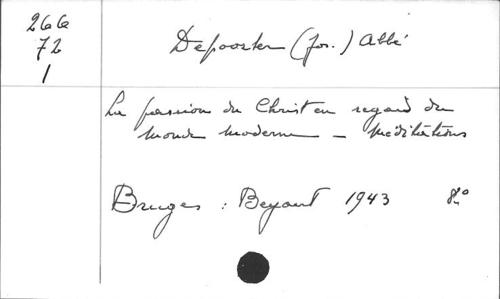 266
72
1
Depoorter (Jos.) Abbé
La passion du Christ en regard du
monde moderne — Méditations
Bruges : Beyaert 1943 8°